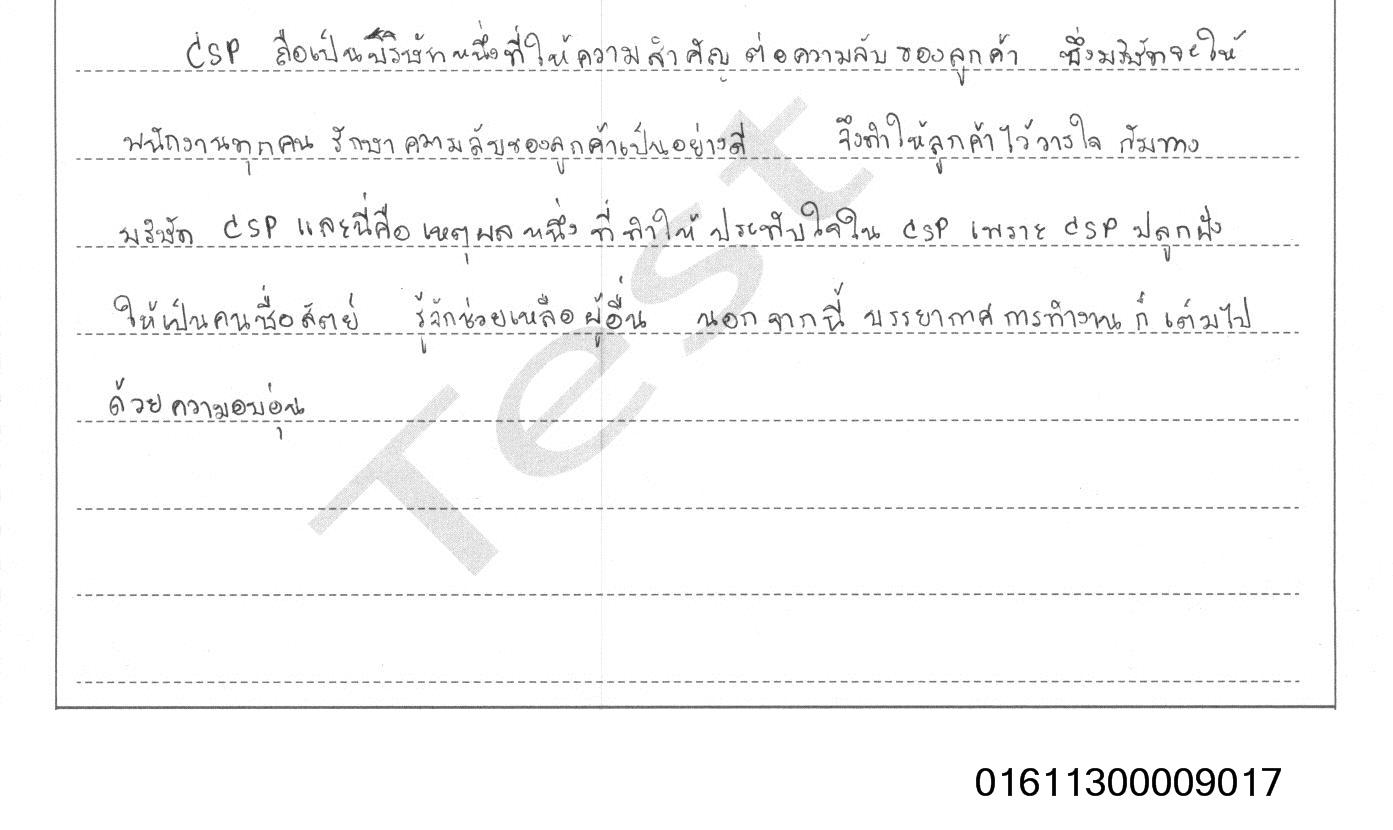 CSP ถือเป็นบริษัทหนึ่งที่ให้ความสำคัญ ต่อความลับของลูกค้า ซึ่งบริษัทจะให้
พนักงานทุกคน รักษาความลับของลูกค้าเป็นอย่างดี จึงทำให้ลูกค้าไว้วางใจ กับทาง
บริษัท CSP และนี่คือ เหตุผลหนึ่ง ที่ทำให้ ประทับใจใน CSP เพราะ CSP ปลูกฝัง
ให้เป็นคนซื่อสัตย์ รู้จักช่วยเหลือผู้อื่น นอกจากนี้ บรรยากาศการทำงานก็เต็มไป
ด้วยความอบอุ่น
Test
01611300009017